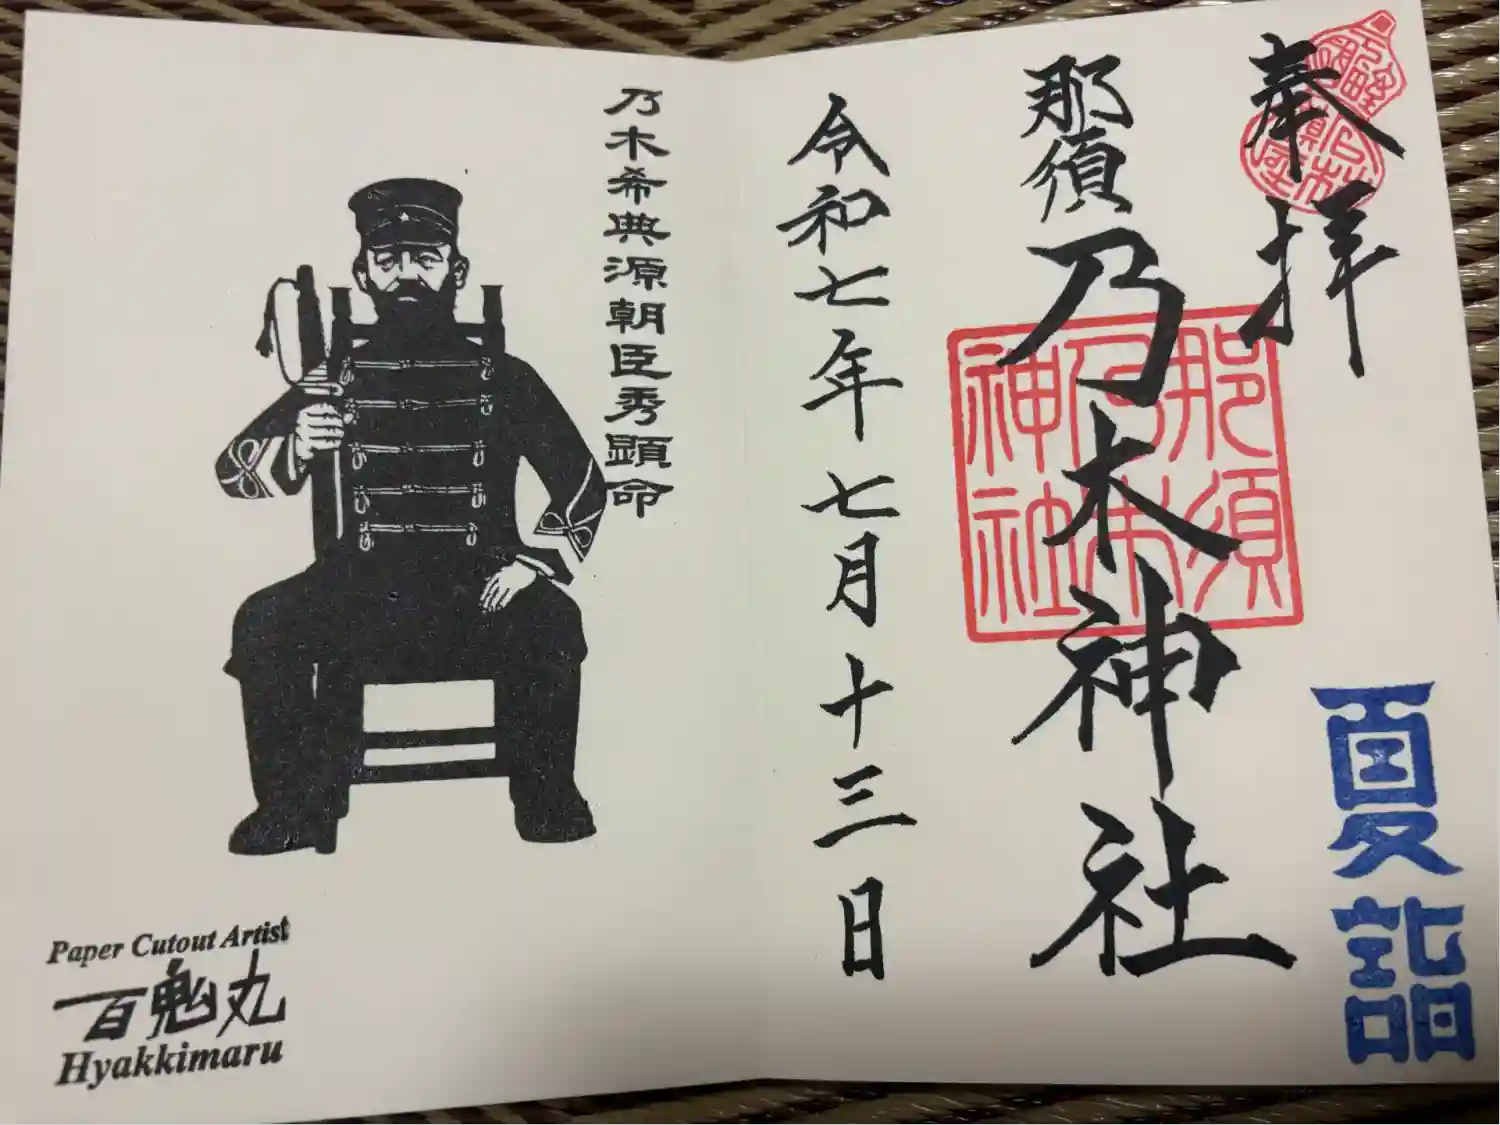 奉拝
夏詣
那須乃木神社
那須
乃木
神社
令和七年七月十三日
乃木希典源朝臣秀顕命
Paper Cutout Artist
百鬼丸
Hyakkimaru